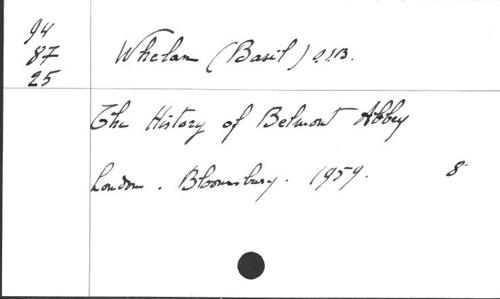 94
87
25
Whelan (Basil) O.S.B.
The History of Belmont Abbey
London. Bloomsbury. 1959. 8°